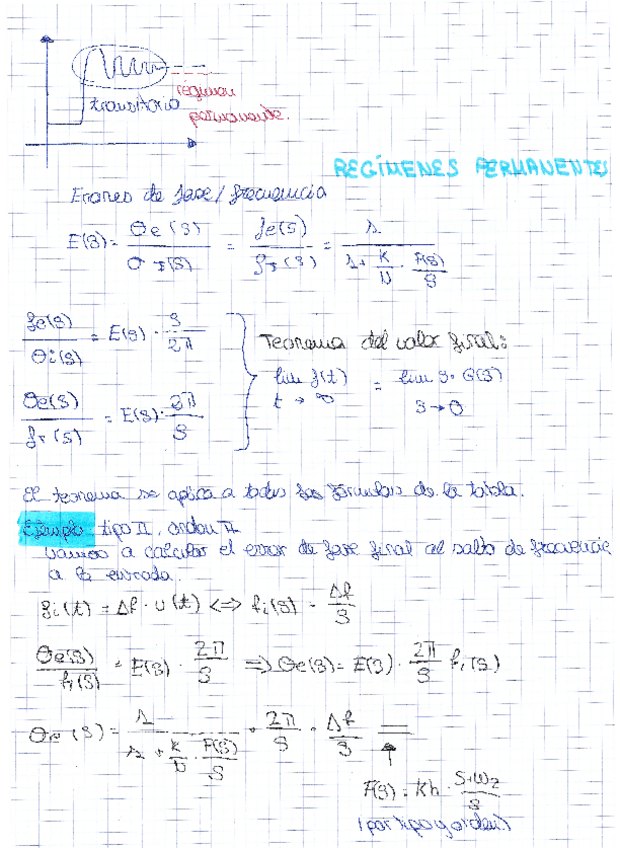 transitorio
régimen
permanente.
REGÍMENES PERMANENTES
Errores de fase/frecuencia
E(s) = θe(s) / θi(s) = fe(s) / fi(s) = 1 / (1 + K/N · F(s)/s)
fe(s)/θi(s) = E(s) · s/2π
Teorema del valor final:
lim f(t) = lim s · G(s)
t → ∞ s → 0
θe(s)/fi(s) = E(s) · 2π/s
El teorema se aplica a todas las fórmulas de la tabla.
Ejemplo tipo II, orden II
vamos a calcular el error de fase final al salto de frecuencia
a la entrada.
fi(t) = Δf · u(t) <=> fi(s) = Δf/s
θe(s)/fi(s) = E(s) · 2π/s => θe(s) = E(s) · 2π/s fi(s)
θe(s) = 1 / (1 + K/N · F(s)/s) · 2π/s · Δf/s =
↑
F(s) = Kh · s+ωz/s
(por tipo y orden)